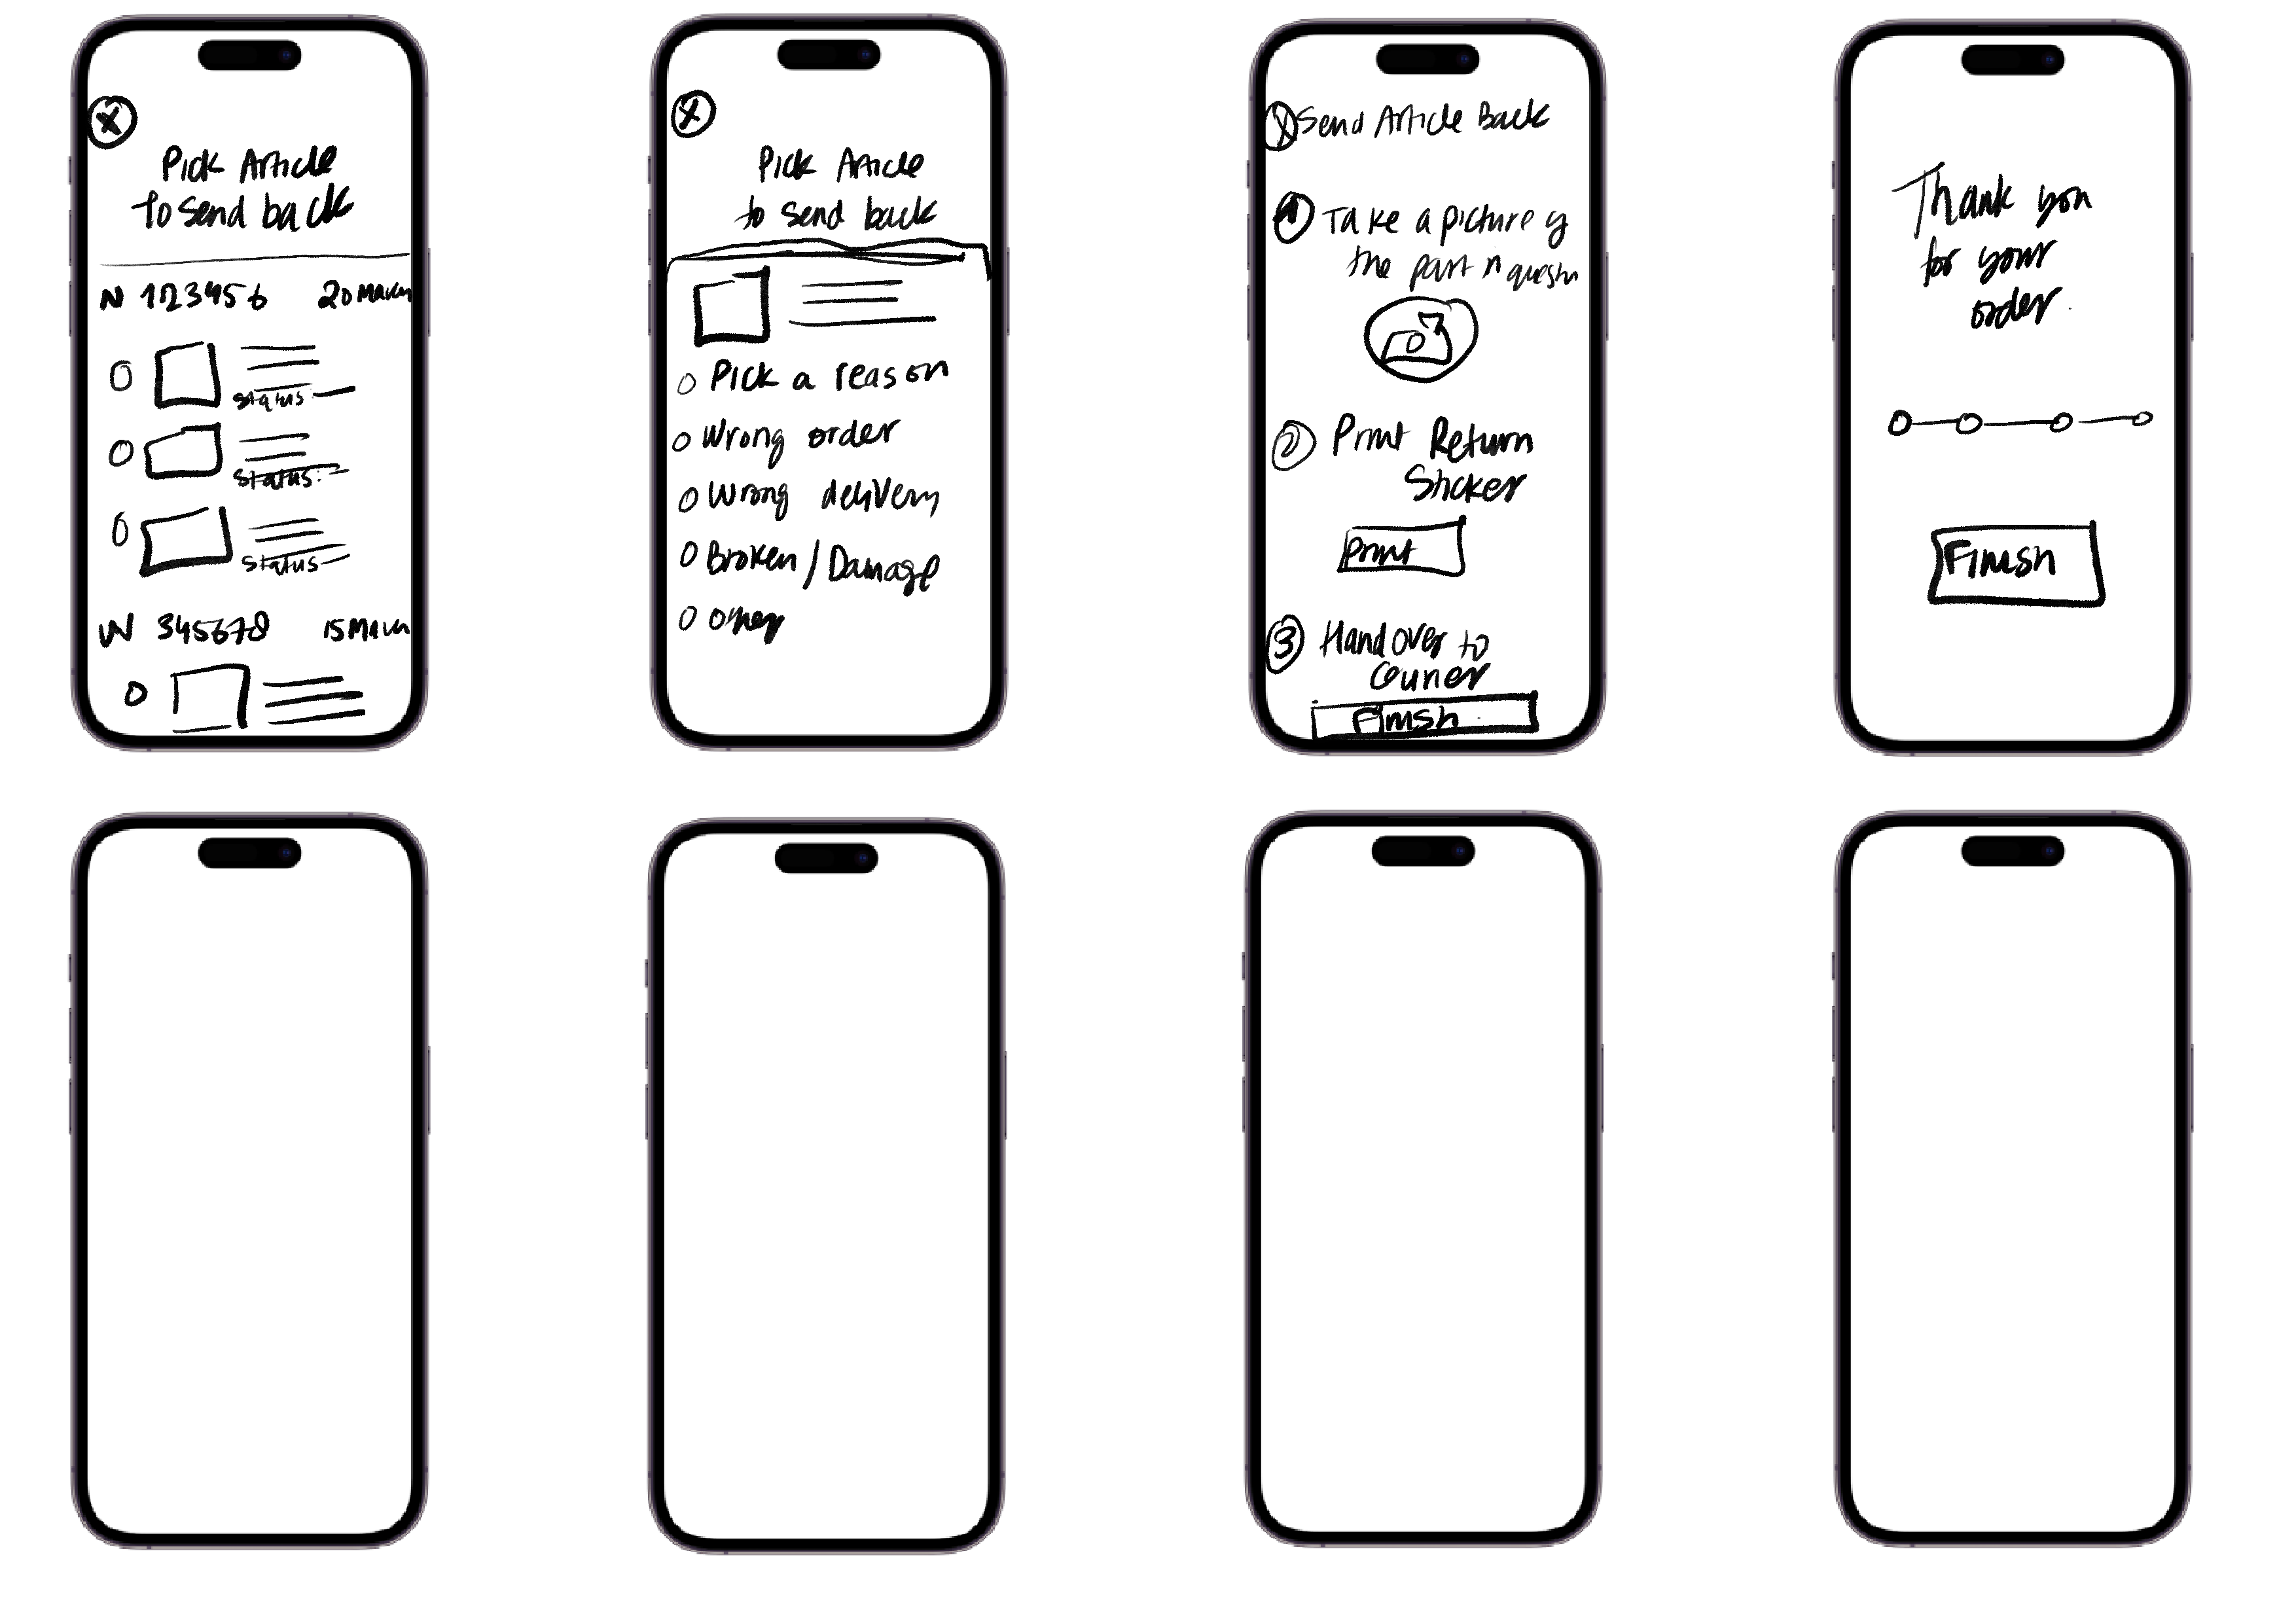 X
Pick Article
to send back
N 123456 20 March
Status:
Status:
Status
N 345678 15 March
X
Pick Article
to send back
Pick a reason
Wrong order
Wrong delivery
Broken / Damage
other
X Send Article Back
1 Take a picture of
the part n
2 Print Return
Sticker
Print
3 Handover to
Finish
Thank you
for your
order.
Finish